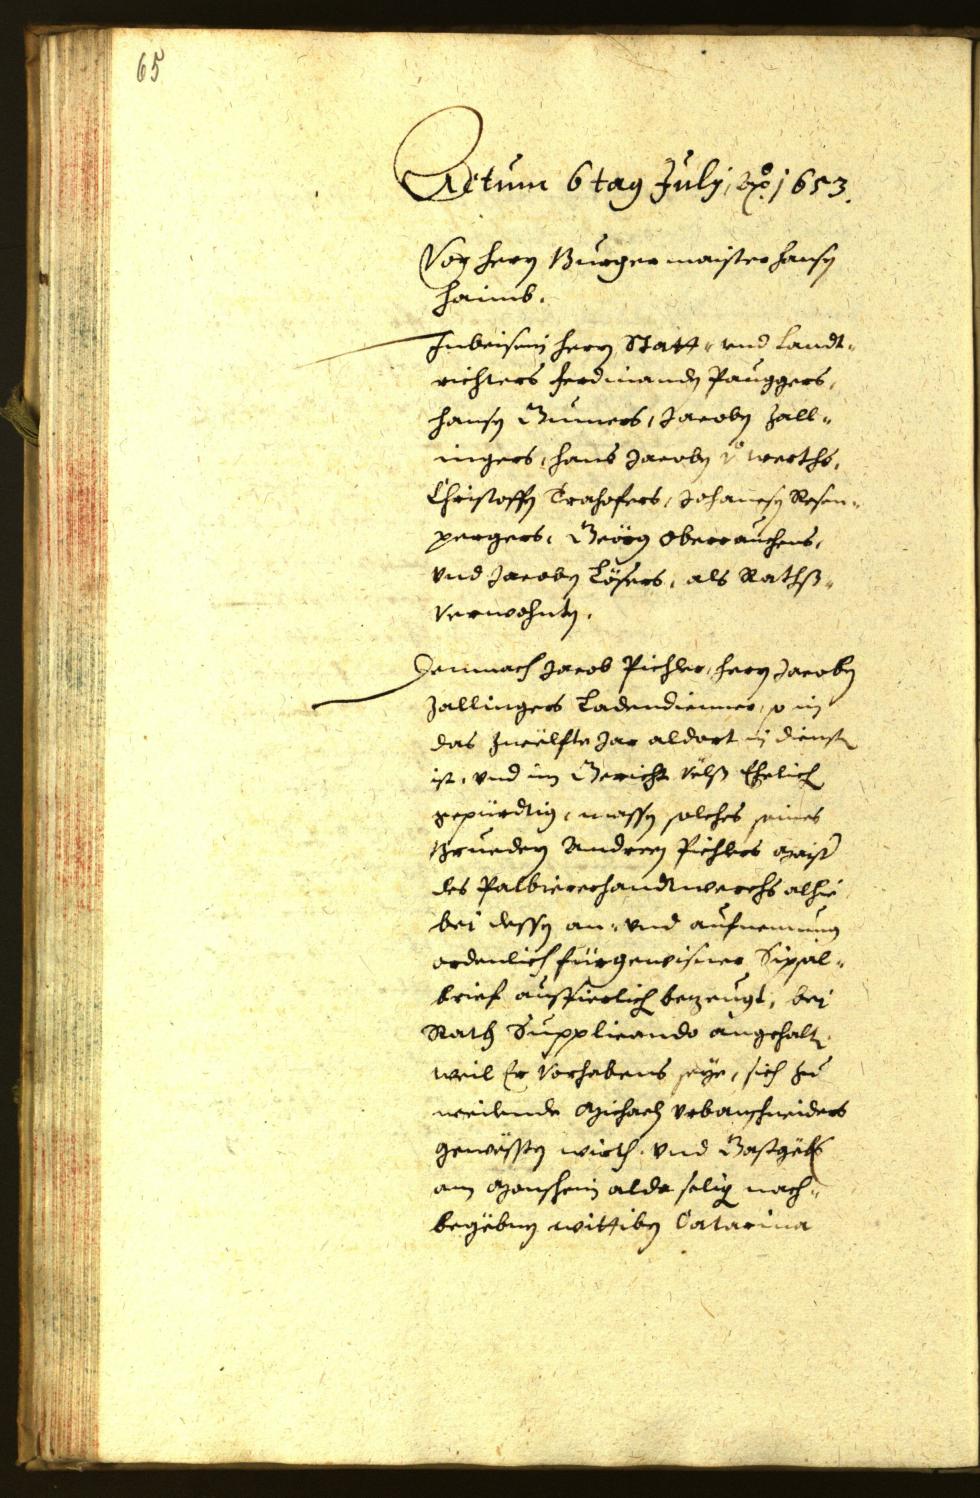 65
Actum 6 tag Julÿ, Ao. 1653.
Vor herrn Burgermaister Hansen
Haimb.
Inbeisein herrn Statt- vnd Landt-
richters Ferdinanden Pauggers,
Hansen Gumers, Jacoben Zall-
ingers, Hans Jacoben v: Werths,
Christoffen Trahofers, Johannesen Rosen-
pergers, Geörg Oberrauchens,
vnd Jacoben Lösers, als Rathß-
verwohnten.
Demnach Jacob Pichler, herrn Jacoben
Zallingers Ladendienner, so in
das zwelfte Jar aldort in dienst
ist, vnd im Gericht Velß Ehelich
gepürdtig, massen solches seines
Brueders Andreen Pichlers Maist
des Palbiererhandtwerchs alhie
bei dessen an- vnd aufnemung
ordenlich fürgewisner Sipsal-
brief ausfierlich bezeugt, bei
Rath Supplicando angehalten
weil Er Vorhabens seÿe, sich zu
weilende Michaeln Vrbanschneiders
gewesten wirth. vnd Gastgebs
am Monschein alda selig nach-
begebnen wittiben Catarina